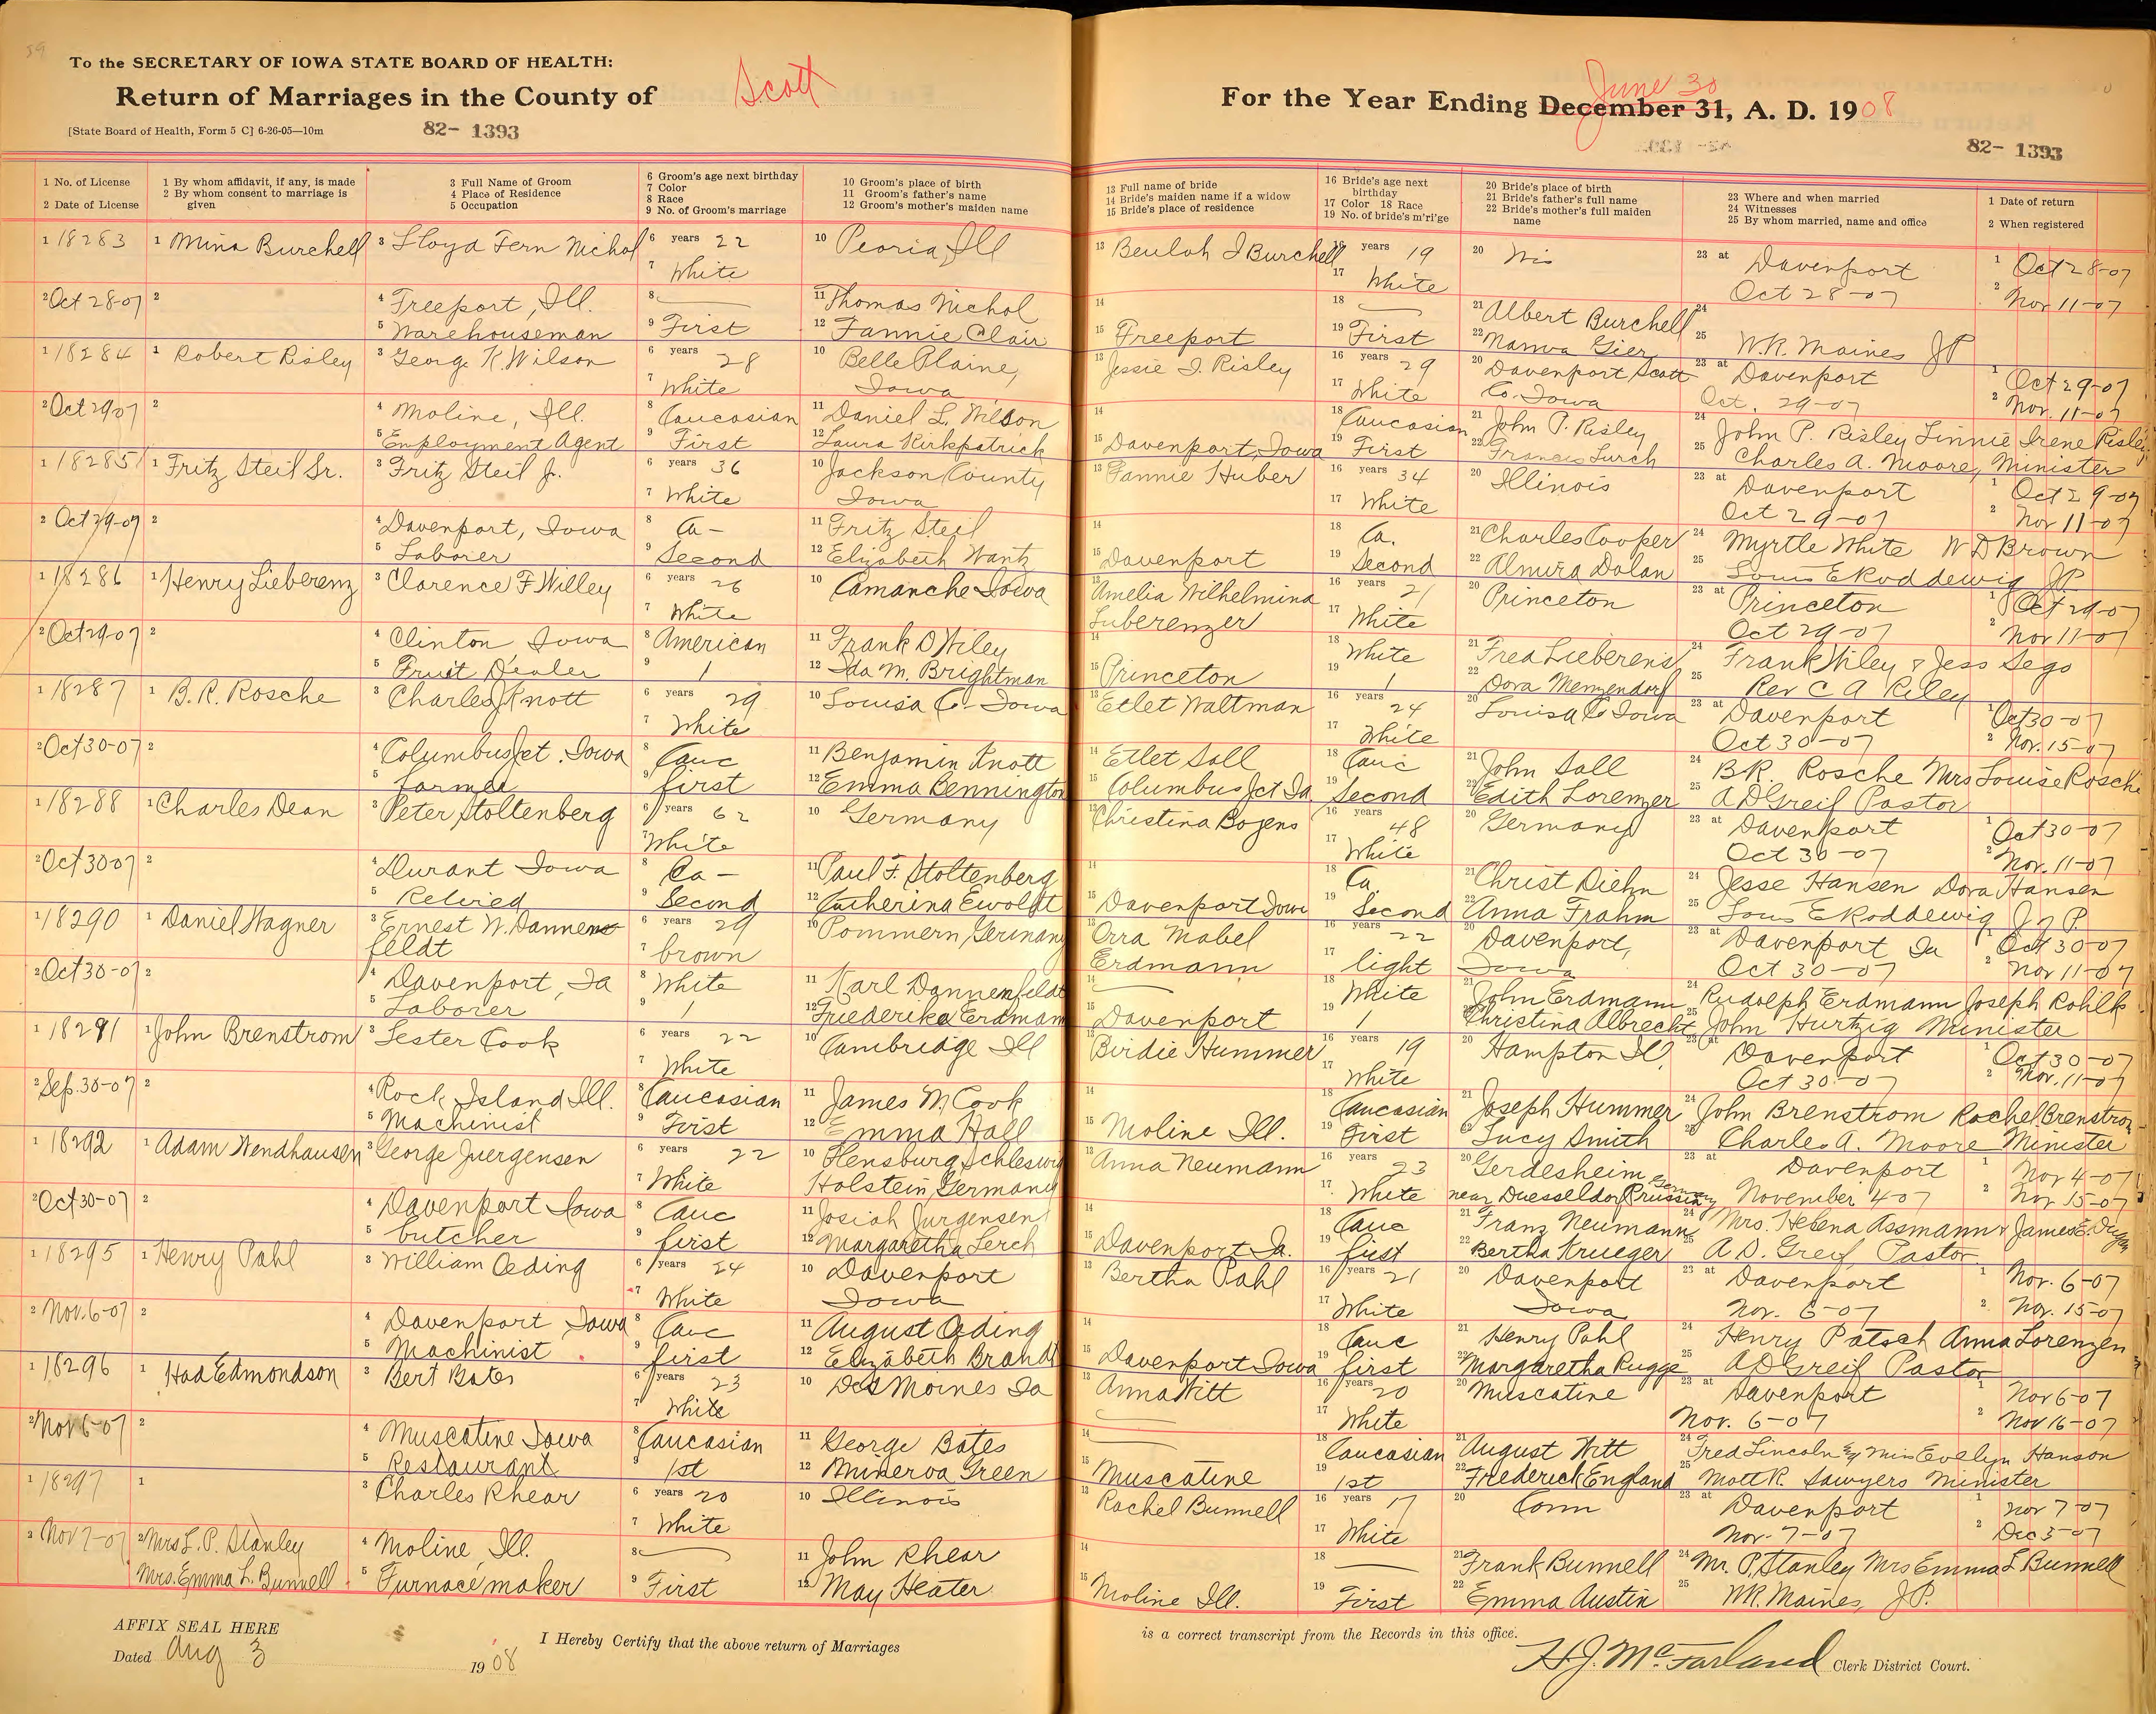 59
To the SECRETARY OF IOWA STATE BOARD OF HEALTH:
Return of Marriages in the County of Scott
[State Board of Health, Form 5 C] 6-26-05—10m
82- 1393
For the Year Ending December 31, A. D. 1908
June 30
82- 1393
1 No. of License
2 Date of License
1 By whom affidavit, if any, is made
2 By whom consent to marriage is given
3 Full Name of Groom
4 Place of Residence
5 Occupation
6 Groom's age next birthday
7 Color
8 Race
9 No. of Groom's marriage
10 Groom's place of birth
11 Groom's father's name
12 Groom's mother's maiden name
13 Full name of bride
14 Bride's maiden name if a widow
15 Bride's place of residence
16 Bride's age next birthday
17 Color 18 Race
19 No. of bride's m'ri'ge
20 Bride's place of birth
21 Bride's father's full name
22 Bride's mother's full maiden name
23 Where and when married
24 Witnesses
25 By whom married, name and office
1 Date of return
2 When registered
1 18283 1 Mina Burchell 3 Lloyd Fern Nichol 6 years 22 10 Peoria, Ill 13 Beulah I Burchell 16 years 19 20 Wis 23 at Davenport 1 Oct 28-07
7 White 17 White Oct 28-07 2 Nov 11-07
2 Oct 28-07 2 4 Freeport, Ill. 8 11 Thomas Nichol 14 18 21 Albert Burchell 24
5 Warehouseman 9 First 12 Fannie Clair 15 Freeport 19 First 22 Gier 25 W.R. Maines JP
1 18284 1 Robert Risley 3 George K. Wilson 6 years 28 10 Belle Plaine, 13 Jessie I. Risley 16 years 29 20 Davenport Scott 23 at Davenport 1 Oct 29-07
7 White Iowa 17 White Co. Iowa Oct. 29-07 2 Nov. 11-07
2 Oct 29 07 2 4 Moline, Ill. 8 Caucasian 11 Daniel L. Wilson 14 18 Caucasian 21 John P. Risley 24 John P. Risley Linnie Irene Risley
5 Employment Agent 9 First 12 Laura Kirkpatrick 15 Davenport, Iowa 19 First 22 Francis Lurch 25 Charles A. Moore, Minister
1 18285 1 Fritz Steil Sr. 3 Fritz Steil Jr. 6 years 36 10 Jackson County 13 Fannie Huber 16 years 34 20 Illinois 23 at Davenport 1 Oct 29-07
7 White Iowa 17 White Oct 29-07 2 Nov 11-07
2 Oct 29-07 2 4 Davenport, Iowa 8 Ca- 11 Fritz Steil 14 18 Ca. 21 Charles Cooper 24 Myrtle White W D Brown
5 Laborer 9 Second 12 Elizabeth Wantz 15 Davenport 19 Second 22 Almira Dolan 25 Louis E Roddewig J.P.
1 18286 1 Henry Lieberenz 3 Clarence F Willey 6 years 26 10 Camanche Iowa 13 Amelia Wilhelmina 16 years 21 20 Princeton 23 at Princeton 1 Oct 29-07
7 White Luberenzer 17 White Oct 29-07 2 Nov 11-07
2 Oct 29-07 2 4 Clinton, Iowa 8 American 11 Frank D Wiley 14 18 White 21 Fred Lieberens 24 Frank Wiley & Jess Sego
5 Fruit Dealer 9 1 12 Ida M. Brightman 15 Princeton 19 1 22 Dora Menzendorf 25 Rev C A Riley
1 18287 1 B.R. Rosche 3 Charles J Knott 6 years 29 10 Louisa Co- Iowa 13 Etlet Waltman 16 years 24 20 Louisa Co Iowa 23 at Davenport 1 Oct 30-07
7 White 17 White Oct 30-07 2 Nov. 15-07
2 Oct 30-07 2 4 Columbus Jct. Iowa 8 Cauc 11 Benjamin Knott 14 Etlet Sall 18 Cauc 21 John Sall 24 B.R. Rosche Mrs Louise Rosche
5 farmer 9 first 12 Emma Bennington 15 Columbus Jct Ia 19 Second 22 Edith Lorenzer 25 A D Greif Pastor
1 18288 1 Charles Dean 3 Peter Stoltenberg 6 years 62 10 Germany 13 Christina Bozens 16 years 48 20 Germany 23 at Davenport 1 Oct 30-07
7 White 17 White Oct 30-07 2 Nov. 11-07
2 Oct 30 07 2 4 Durant Iowa 8 Ca- 11 Paul F. Stoltenberg 14 18 Ca 21 Christ Diehn 24 Jesse Hansen Dora Hansen
5 Retired 9 Second 12 Catherina Ewoldt 15 Davenport Iowa 19 Second 22 Anna Frahm 25 Louis E Roddewig J of P.
1 18290 1 Daniel Wagner 3 Ernest W. Dannen- 6 years 29 10 Pommern, Germany 13 Orra Mabel 16 years 22 20 Davenport, 23 at Davenport Ia 1 Oct 30-07
feldt 7 brown Erdmann 17 light Iowa Oct 30-07 2 Nov 11-07
2 Oct 30-07 2 4 Davenport, Ia 8 White 11 Karl Dannenfeldt 14 18 White 21 John Erdmann 24 Rudolph Erdmann Joseph Rohlk
5 Laborer 9 1 12 Friederike Erdmann 15 Davenport 19 1 22 Christina Albrecht 25 John Hurtzig Minister
1 18291 1 John Brenstrom 3 Lester Cook 6 years 22 10 Cambridge Ill 13 Birdie Hummer 16 years 19 20 Hampton Ill, 23 at Davenport 1 Oct 30-07
7 White 17 White Oct 30-07 2 Nov. 11-07
2 Sep. 30-07 2 4 Rock Island Ill. 8 Caucasian 11 James M. Cook 14 18 Caucasian 21 Joseph Hummer 24 John Brenstrom Rachel Brenstrom
5 Machinist 9 First 12 Emma Hall 15 Moline Ill. 19 First 22 Lucy Smith 25 Charles A. Moore Minister
1 18292 1 Adam Wendhausen 3 George Juergensen 6 years 22 10 Flensburg, Schleswig 13 Anna Neumann 16 years 23 20 Gerdesheim 23 at Davenport 1 Nov 4-07
7 White Holstein, Germany 17 White near Duesseldorf Prussia, Germany November 4 07 2 Nov 15-07
2 Oct 30-07 2 4 Davenport Iowa 8 Cauc 11 Josiah Jurgensen 14 18 Cauc 21 Franz Neumann 24 Mrs. Helena Assmann & James E.
5 butcher 9 first 12 Margaretha Lerch 15 Davenport Ia. 19 first 22 Bertha Krueger 25 A.D. Greif Pastor
1 18295 1 Henry Pahl 3 William Oeding 6 years 24 10 Davenport 13 Bertha Pahl 16 years 21 20 Davenport 23 at Davenport 1 Nov. 6-07
7 White Iowa 17 White Iowa Nov. 6-07 2 Nov. 15-07
2 Nov. 6-07 2 4 Davenport Iowa 8 Cauc 11 August Oeding 14 18 Cauc 21 Henry Pahl 24 Henry Patsch Anna Lorenzen
5 Machinist 9 first 12 Elizabeth Brandt 15 Davenport Iowa 19 first 22 Margaretha Rugge 25 A D Greif Pastor
1 18296 1 Had Edmondson 3 Bert Bates 6 years 23 10 Des Moines Ia 13 Anna Witt 16 years 20 20 Muscatine 23 at Davenport 1 Nov 6-07
7 White 17 White Nov. 6-07 2 Nov 16-07
2 Nov 6-07 2 4 Muscatine Iowa 8 Caucasian 11 George Bates 14 18 Caucasian 21 August Witt 24 Fred Lincoln & Miss Evelyn Hanson
5 Restaurant 9 1st 12 Minerva Green 15 Muscatine 19 1st 22 Frederick England 25 Mott R. Sawyers Minister
1 18297 1 3 Charles Rhear 6 years 20 10 Illinois 13 Rachel Bunnell 16 years 17 20 Conn 23 at Davenport 1 Nov 7-07
7 White 17 White Nov-7-07 2 Dec 3-07
2 Nov 7-07 2 Mrs L. P. Stanley 4 Moline, Ill. 8 11 John Rhear 14 18 21 Frank Bunnell 24 Mr. P. Stanley Mrs Emma L Bunnell
Mrs. Emma L. Bunnell 5 Furnace maker 9 First 12 May Heater 15 Moline Ill. 19 First 22 Emma Austin 25 W.R. Maines, J.P.
AFFIX SEAL HERE
Dated Aug 3 1908
I Hereby Certify that the above return of Marriages is a correct transcript from the Records in this office.
H.J. McFarland Clerk District Court.